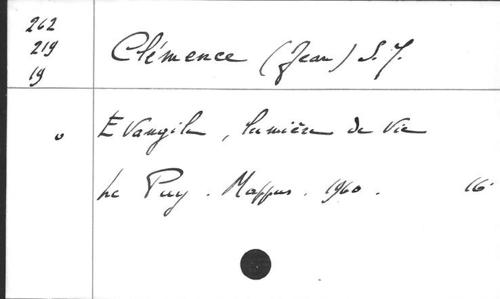 262
219
19
Clémence (Jean) S. J.
Evangile, lumière de Vie
Le Puy. Mappus. 1960. 16°